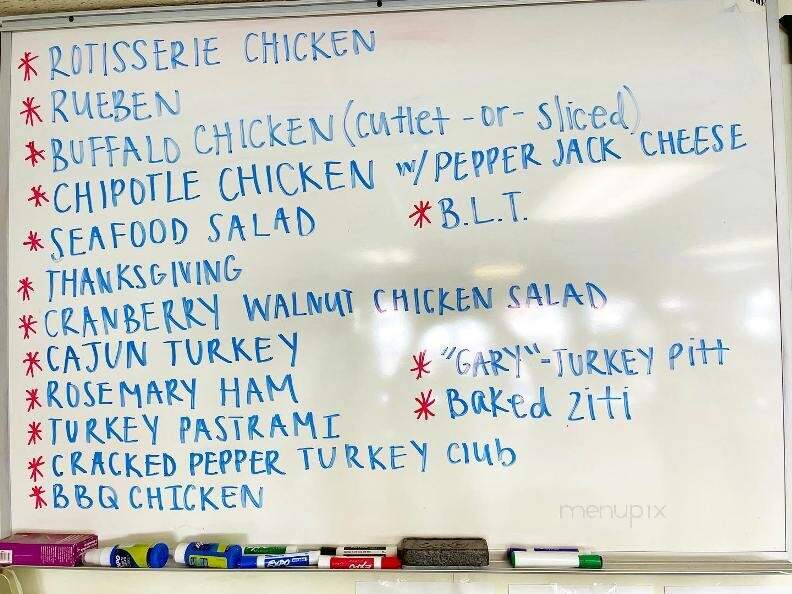 * ROTISSERIE CHICKEN
* RUEBEN
* BUFFALO CHICKEN (cutlet -or- sliced)
* CHIPOTLE CHICKEN w/ PEPPER JACK CHEESE
* SEAFOOD SALAD
* B.L.T.
* THANKSGIVING
* CRANBERRY WALNUT CHICKEN SALAD
* CAJUN TURKEY
* "GARY"-TURKEY Pitt
* ROSEMARY HAM
* Baked ziti
* TURKEY PASTRAMI
* CRACKED PEPPER TURKEY club
* BBQ CHICKEN
menupix
EXPO